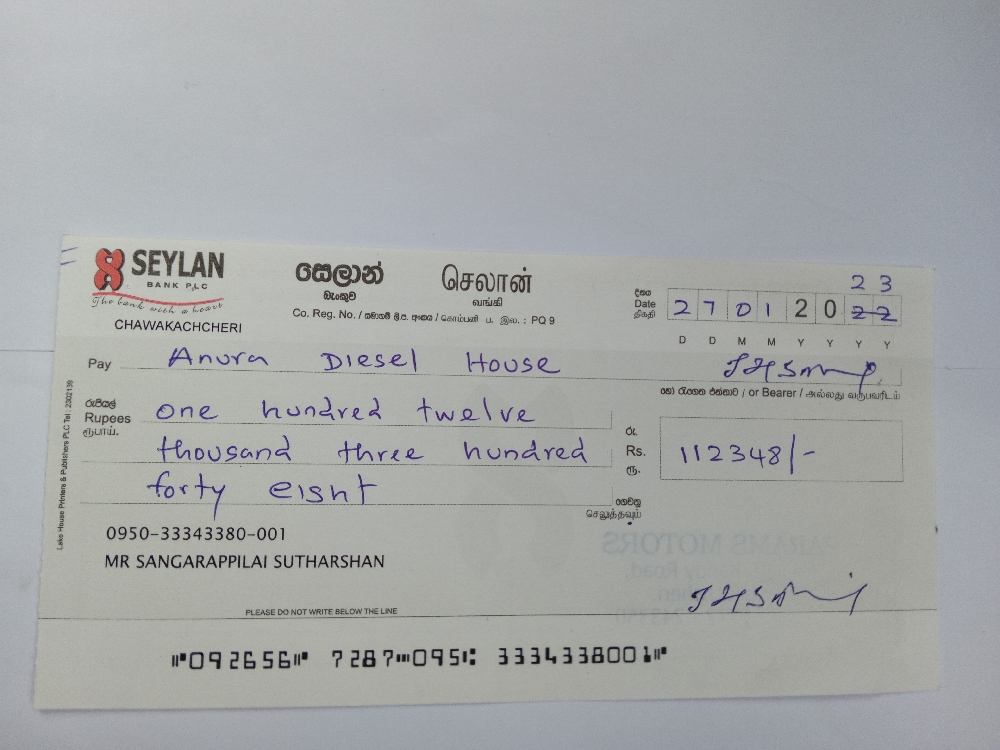 SEYLAN
BANK PLC
The bank with a heart
CHAWAKACHCHERI
සෙලාන්
බැංකුව
செலான்
வங்கி
Co. Reg. No. / සමාගම් ලි.ප. අංකය / கொம்பனி ப. இல. : PQ 9
23
දිනය
Date
திகதி
27 01 20 22
D D M M Y Y Y Y
Pay Anura Diesel House
හෝ රැගෙන එන්නාට / or Bearer / அல்லது வருபவரிடம்
රුපියල්
Rupees
ரூபாய்.
one hundred twelve
thousand three hundred
forty eight
රු.
Rs.
ரூ.
112348/-
ගෙවනු
செலுத்தவும்
0950-33343380-001
MR SANGARAPPILAI SUTHARSHAN
PLEASE DO NOT WRITE BELOW THE LINE
092656 7287 095 3334338001
Lake House Printers & Publishers PLC Tel : 2302139
PARAMS MOTORS